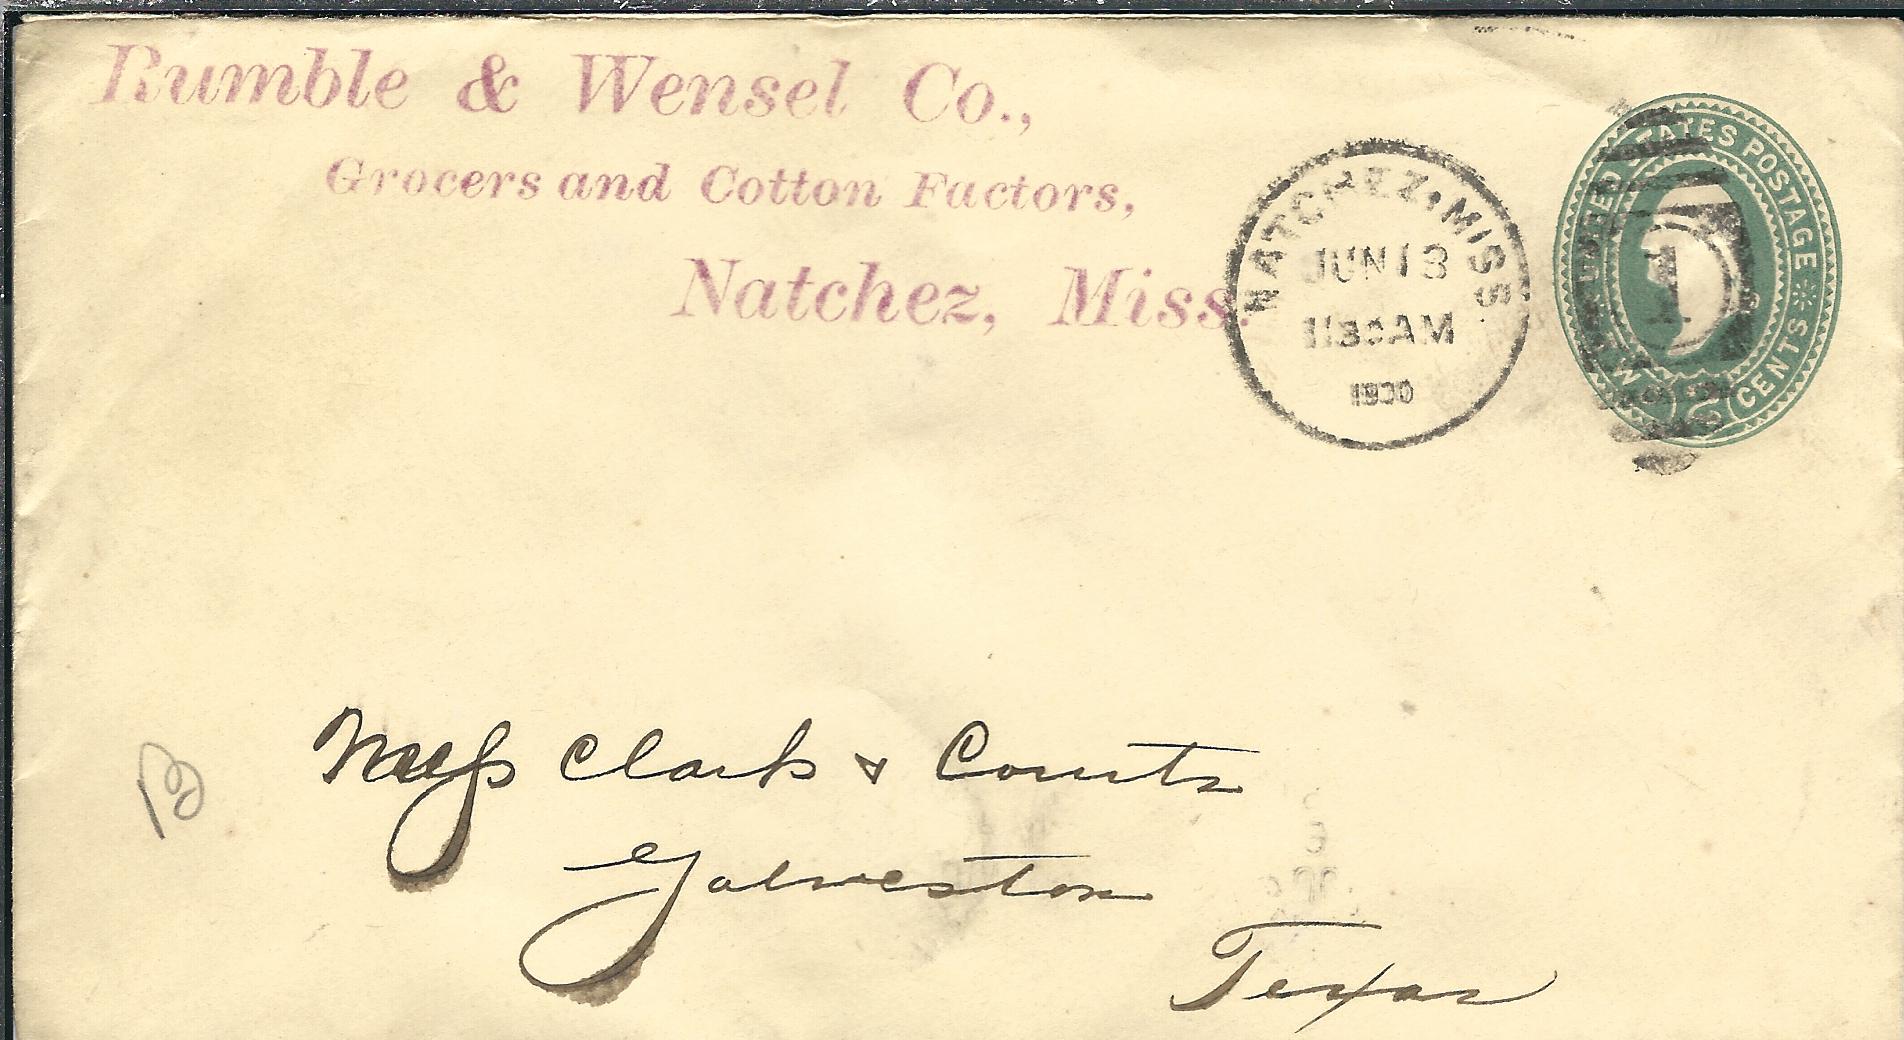 Rumble & Wensel Co.,
Grocers and Cotton Factors,
Natchez, Miss.
NATCHEZ. MISS
JUN 13
1130AM
UNITED STATES POSTAGE
TWO CENTS
2
1
Mess Clark & Courts
Galveston
Texas